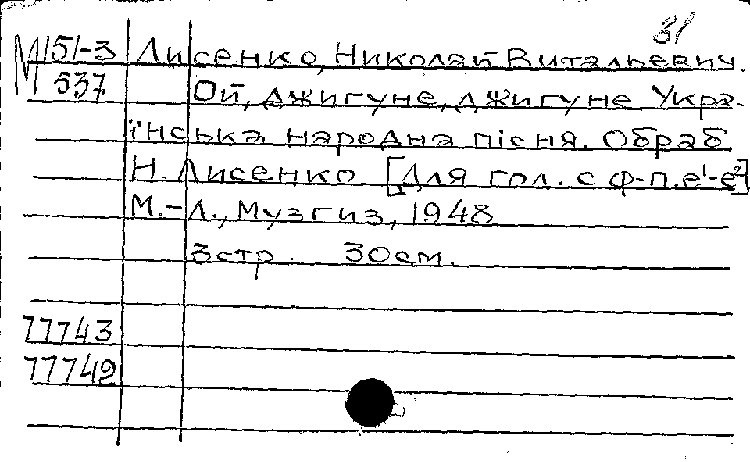 31
М 151-3 Лисенко, Николай Витальевич.
537 Ой, джигуне, джигуне Укра-
їнська народна пісня. Обраб
Н. Лисенко [Для гол. с ф-п. e¹-e²]
М.-Л., Музгиз, 1948
3стр. 30см.
77743
77742